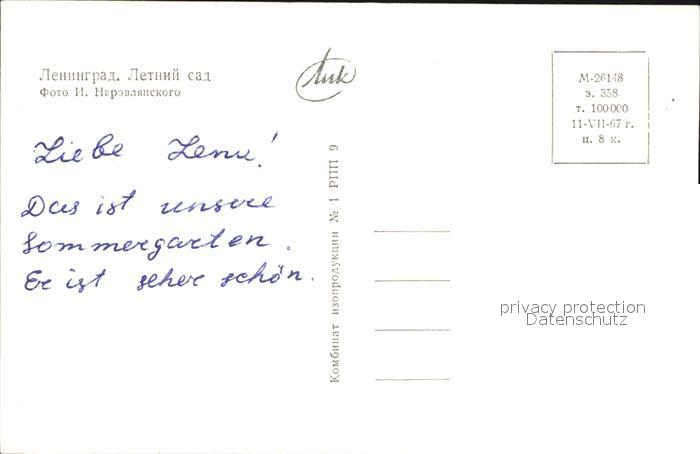 Ленинград. Летний сад
Фото И. Наровлянского
М-26148
з. 358
т. 100 000
11-VII-67 г.
ц. 8 к.
Liebe Lena!
Das ist unsere
Sommergarten.
Er ist seher schön.
Комбинат изопродукции № 1 РПП 9
privacy protection
Datenschutz